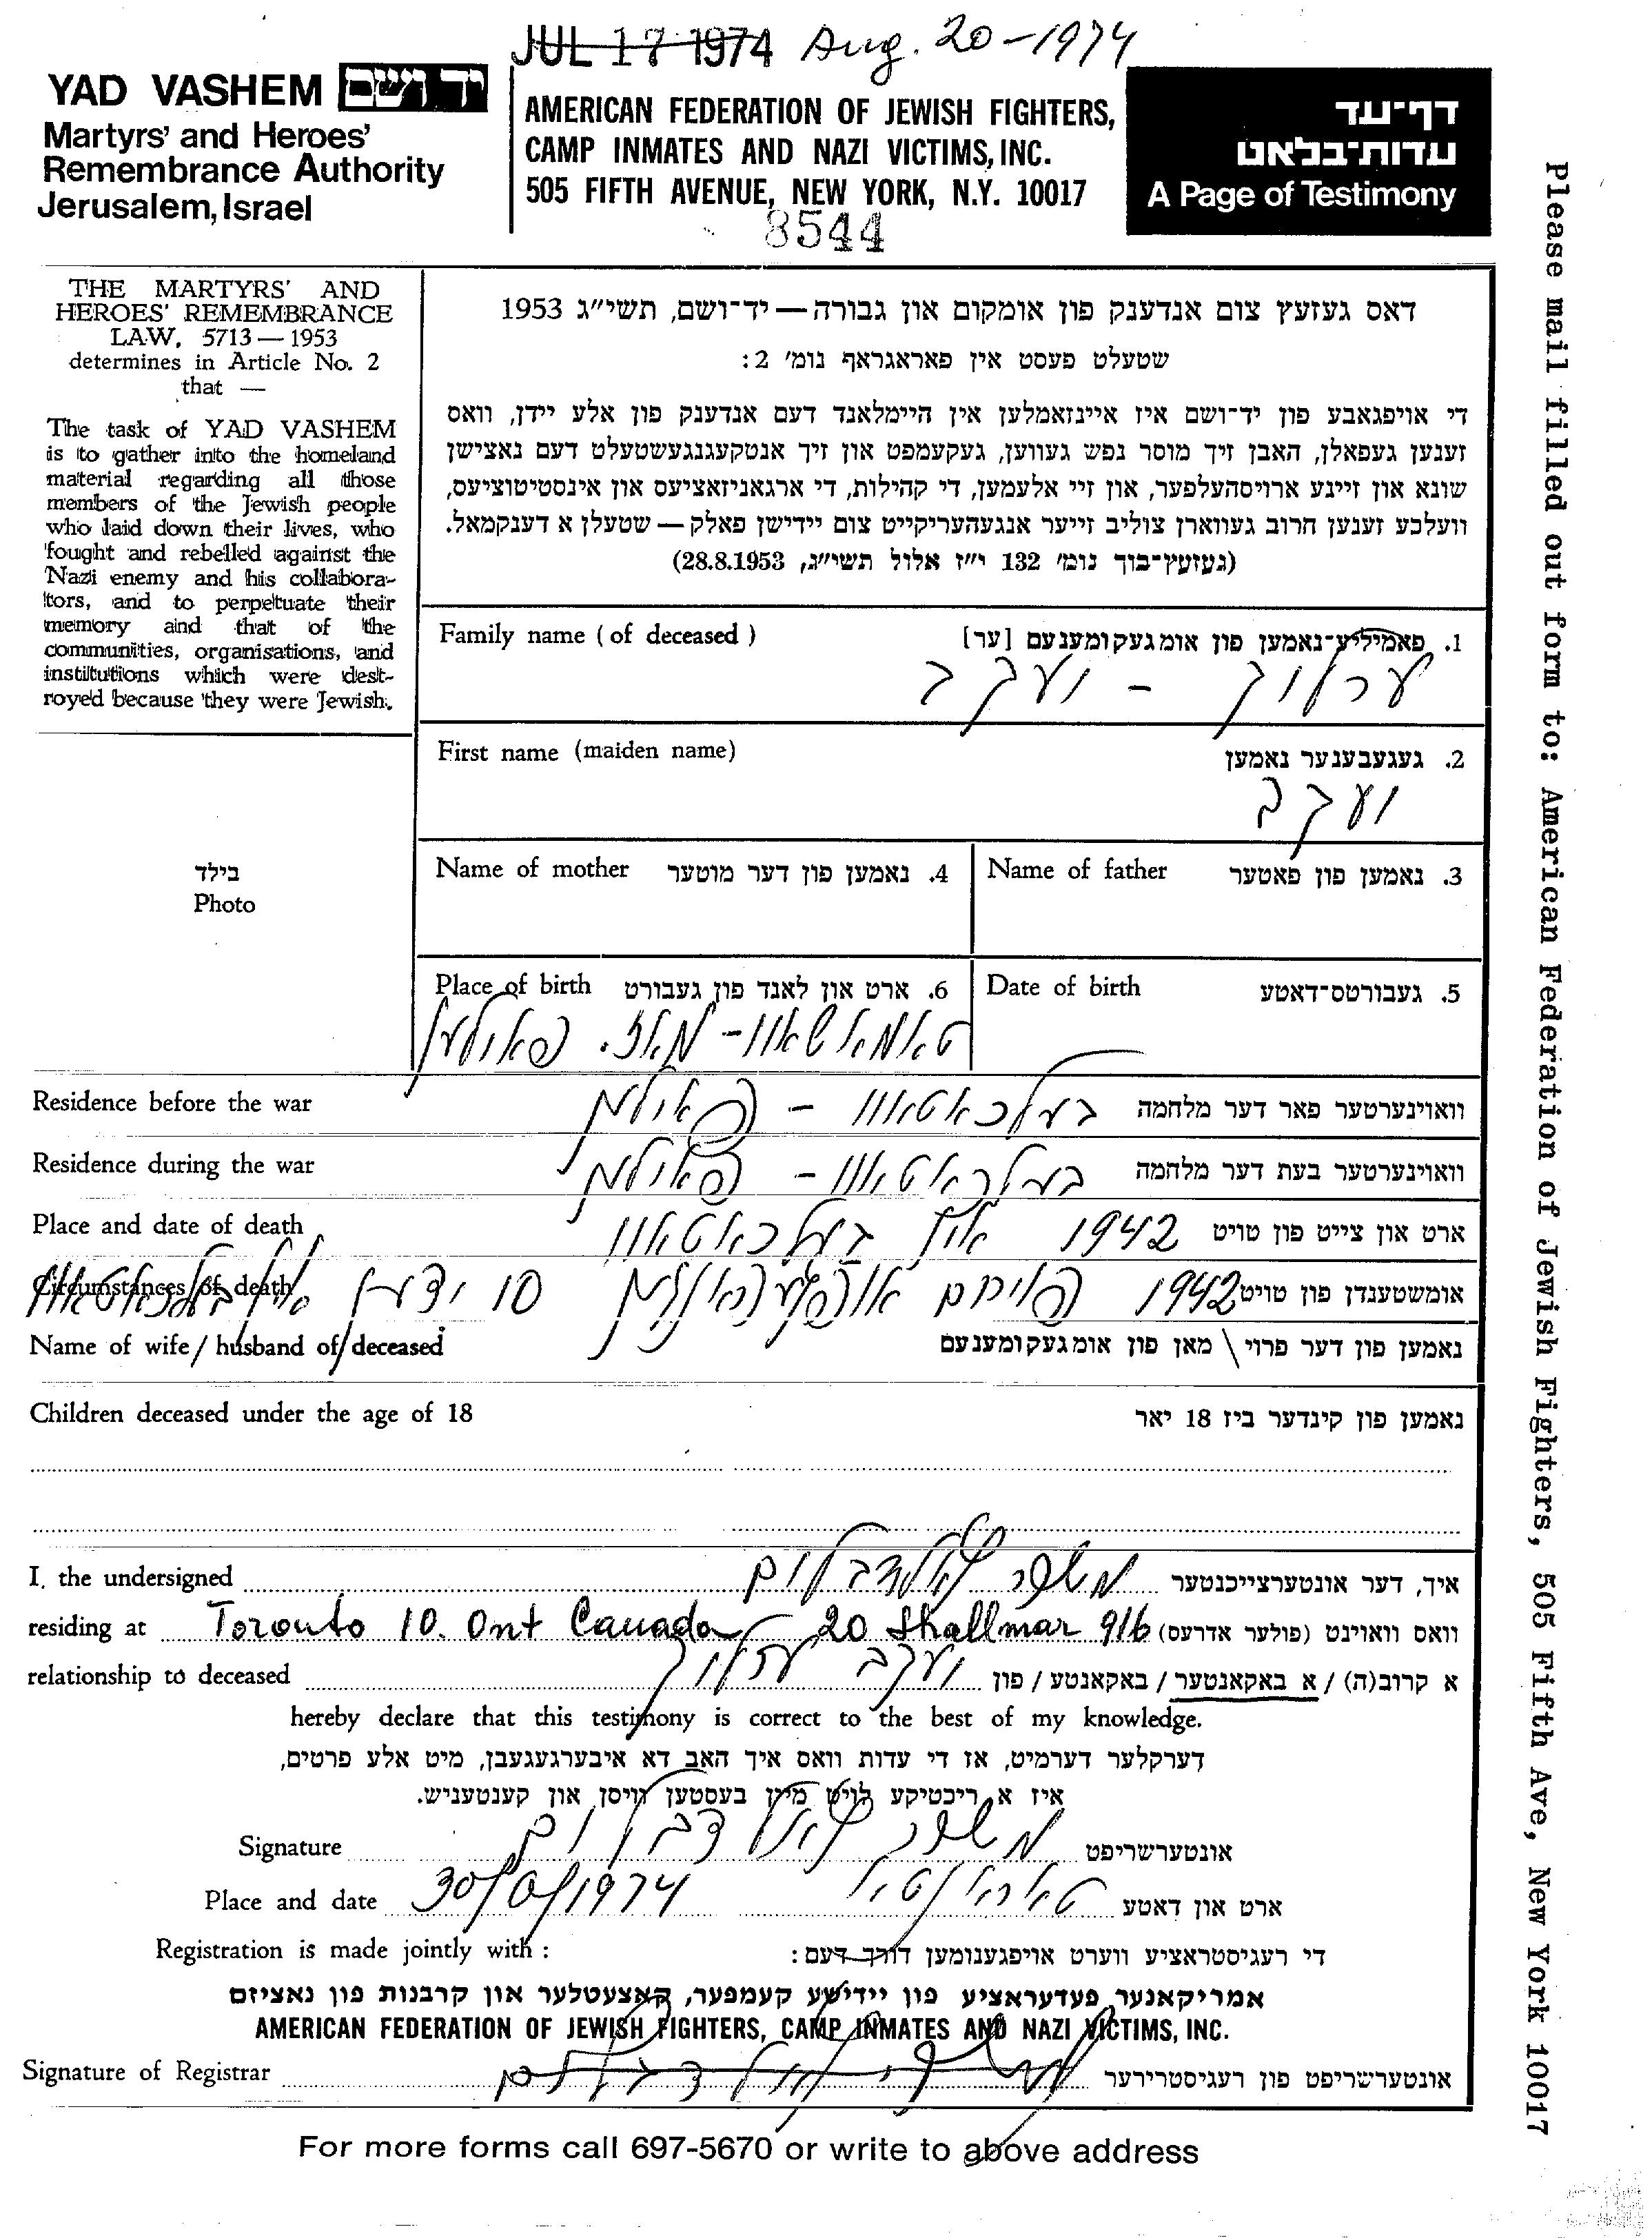 JUL 17 1974 Aug. 20-1974
YAD VASHEM יד ושם
Martyrs' and Heroes'
Remembrance Authority
Jerusalem, Israel
AMERICAN FEDERATION OF JEWISH FIGHTERS,
CAMP INMATES AND NAZI VICTIMS, INC.
505 FIFTH AVENUE, NEW YORK, N.Y. 10017
8544
דף־עד
עדות־בלאט
A Page of Testimony
THE MARTYRS' AND
HEROES' REMEMBRANCE
LAW, 5713 — 1953
determines in Article No. 2
that —
The task of YAD VASHEM
is to gather into the homeland
material regarding all those
members of the Jewish people
who laid down their lives, who
fought and rebelled against the
Nazi enemy and his collabora-
tors, and to perpetuate their
memory and that of the
communities, organisations, and
institutions which were dest-
royed because they were Jewish.
דאס געזעץ צום אנדענק פון אומקום און גבורה — יד־ושם, תשי״ג 1953
שטעלט פעסט אין פאראגראף נומ׳ 2:
די אויפגאבע פון יד־ושם איז איינזאמלען אין היימלאנד דעם אנדענק פון אלע יידן, וואס
זענען געפאלן, האבן זיך מוסר נפש געווען, געקעמפט און זיך אנטקעגנגעשטעלט דעם נאצישן
שונא און זיינע ארויסהעלפער, און זיי אלעמען, די קהילות, די ארגאניזאציעס און אינסטיטוציעס,
וועלכע זענען חרוב געווארן צוליב זייער אנגעהעריקייט צום יידישן פאלק — שטעלן א דענקמאל.
(געזעץ־בוך נומ׳ 132 י״ז אלול תשי״ג, 28.8.1953)
Family name ( of deceased ) 1. פאמיליע־נאמען פון אומגעקומענעם [ער]
יעקב
First name (maiden name) 2. געגעבענער נאמען
יעקב
בילד
Photo
Name of father 3. נאמען פון פאטער
Name of mother 4. נאמען פון דער מוטער
Date of birth 5. געבורטס־דאטע
Place of birth 6. ארט און לאנד פון געבורט
טאמאשאוו - מאז. פוילען
Residence before the war וואוינערטער פאר דער מלחמה
בעלכאטאוו - פוילן
Residence during the war וואוינערטער בעת דער מלחמה
בעלכאטאוו - פוילן
Place and date of death ארט און צייט פון טויט
1942 אין בעלכאטאוו
Circumstances of death אומשטענדן פון טויט
1942 פורים אויפגעהאנגען 10 יידן אין בעלכאטאוו
Name of wife / husband of deceased נאמען פון דער פרוי \ מאן פון אומגעקומענעם
Children deceased under the age of 18 נאמען פון קינדער ביז 18 יאר
I, the undersigned איך, דער אונטערצייכנטער
residing at Toronto 10. Ont Canada 20 Shallmar 916 וואס וואוינט (פולער אדרעס)
relationship to deceased א קרוב(ה) / א באקאנטער / באקאנטע / פון
יעקב
hereby declare that this testimony is correct to the best of my knowledge.
דערקלער דערמיט, אז די עדות וואס איך האב דא איבערגעגעבן, מיט אלע פרטים,
איז א ריכטיקע לויט מיין בעסטען וויסן און קענטעניש.
Signature אונטערשריפט
Place and date 1974 טאראנטא ארט און דאטע
Registration is made jointly with : די רעגיסטראציע ווערט אויפגענומען דורך דעם:
אמריקאנער פעדעראציע פון יידישע קעמפער, קאצעטלער און קרבנות פון נאציזם
AMERICAN FEDERATION OF JEWISH FIGHTERS, CAMP INMATES AND NAZI VICTIMS, INC.
Signature of Registrar אונטערשריפט פון רעגיסטרירער
For more forms call 697-5670 or write to above address
Please mail filled out form to: American Federation of Jewish Fighters, 505 Fifth Ave, New York 10017